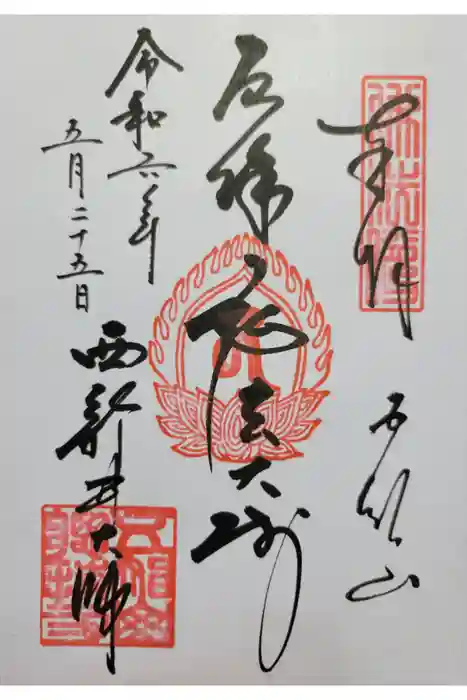 奉拝
五智山
厄除弘法大師
令和六年
五月二十五日
西新井大師